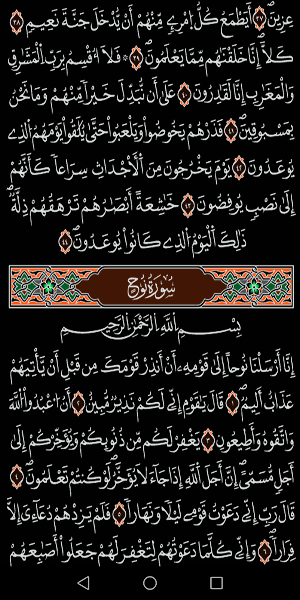 عِزِينَ ٣٧ أَيَطْمَعُ كُلُّ امْرِئٍ مِّنْهُمْ أَن يُدْخَلَ جَنَّةَ نَعِيمٍ ٣٨
كَلَّا إِنَّا خَلَقْنَٰهُم مِّمَّا يَعْلَمُونَ ٣٩ ۞ فَلَا أُقْسِمُ بِرَبِّ الْمَشَٰرِقِ
وَالْمَغَٰرِبِ إِنَّا لَقَٰدِرُونَ ٤٠ عَلَىٰ أَن نُّبَدِّلَ خَيْرًا مِّنْهُمْ وَمَا نَحْنُ
بِمَسْبُوقِينَ ٤١ فَذَرْهُمْ يَخُوضُوا وَيَلْعَبُوا حَتَّىٰ يُلَٰقُوا يَوْمَهُمُ الَّذِي
يُوعَدُونَ ٤٢ يَوْمَ يَخْرُجُونَ مِنَ الْأَجْدَاثِ سِرَاعًا كَأَنَّهُمْ
إِلَىٰ نَصْبٍ يُوفِضُونَ ٤٣ خَٰشِعَةً أَبْصَٰرُهُمْ تَرْهَقُهُمْ ذِلَّةٌ
ذَٰلِكَ الْيَوْمُ الَّذِي كَانُوا يُوعَدُونَ ٤٤
سُورَةُ نُوحٍ
بِسْمِ اللَّهِ الرَّحْمَٰنِ الرَّحِيمِ
إِنَّا أَرْسَلْنَا نُوحًا إِلَىٰ قَوْمِهِ أَنْ أَنذِرْ قَوْمَكَ مِن قَبْلِ أَن يَأْتِيَهُمْ
عَذَابٌ أَلِيمٌ ١ قَالَ يَٰقَوْمِ إِنِّي لَكُمْ نَذِيرٌ مُّبِينٌ ٢ أَنُ اعْبُدُوا اللَّهَ
وَاتَّقُوهُ وَأَطِيعُونِ ٣ يَغْفِرْ لَكُم مِّن ذُنُوبِكُمْ وَيُؤَخِّرْكُمْ إِلَىٰ
أَجَلٍ مُّسَمًّى إِنَّ أَجَلَ اللَّهِ إِذَا جَاءَ لَا يُؤَخَّرُ لَوْ كُنتُمْ تَعْلَمُونَ ٤
قَالَ رَبِّ إِنِّي دَعَوْتُ قَوْمِي لَيْلًا وَنَهَارًا ٥ فَلَمْ يَزِدْهُمْ دُعَاءِي إِلَّا
فِرَارًا ٦ وَإِنِّي كُلَّمَا دَعَوْتُهُمْ لِتَغْفِرَ لَهُمْ جَعَلُوا أَصَٰبِعَهُمْ